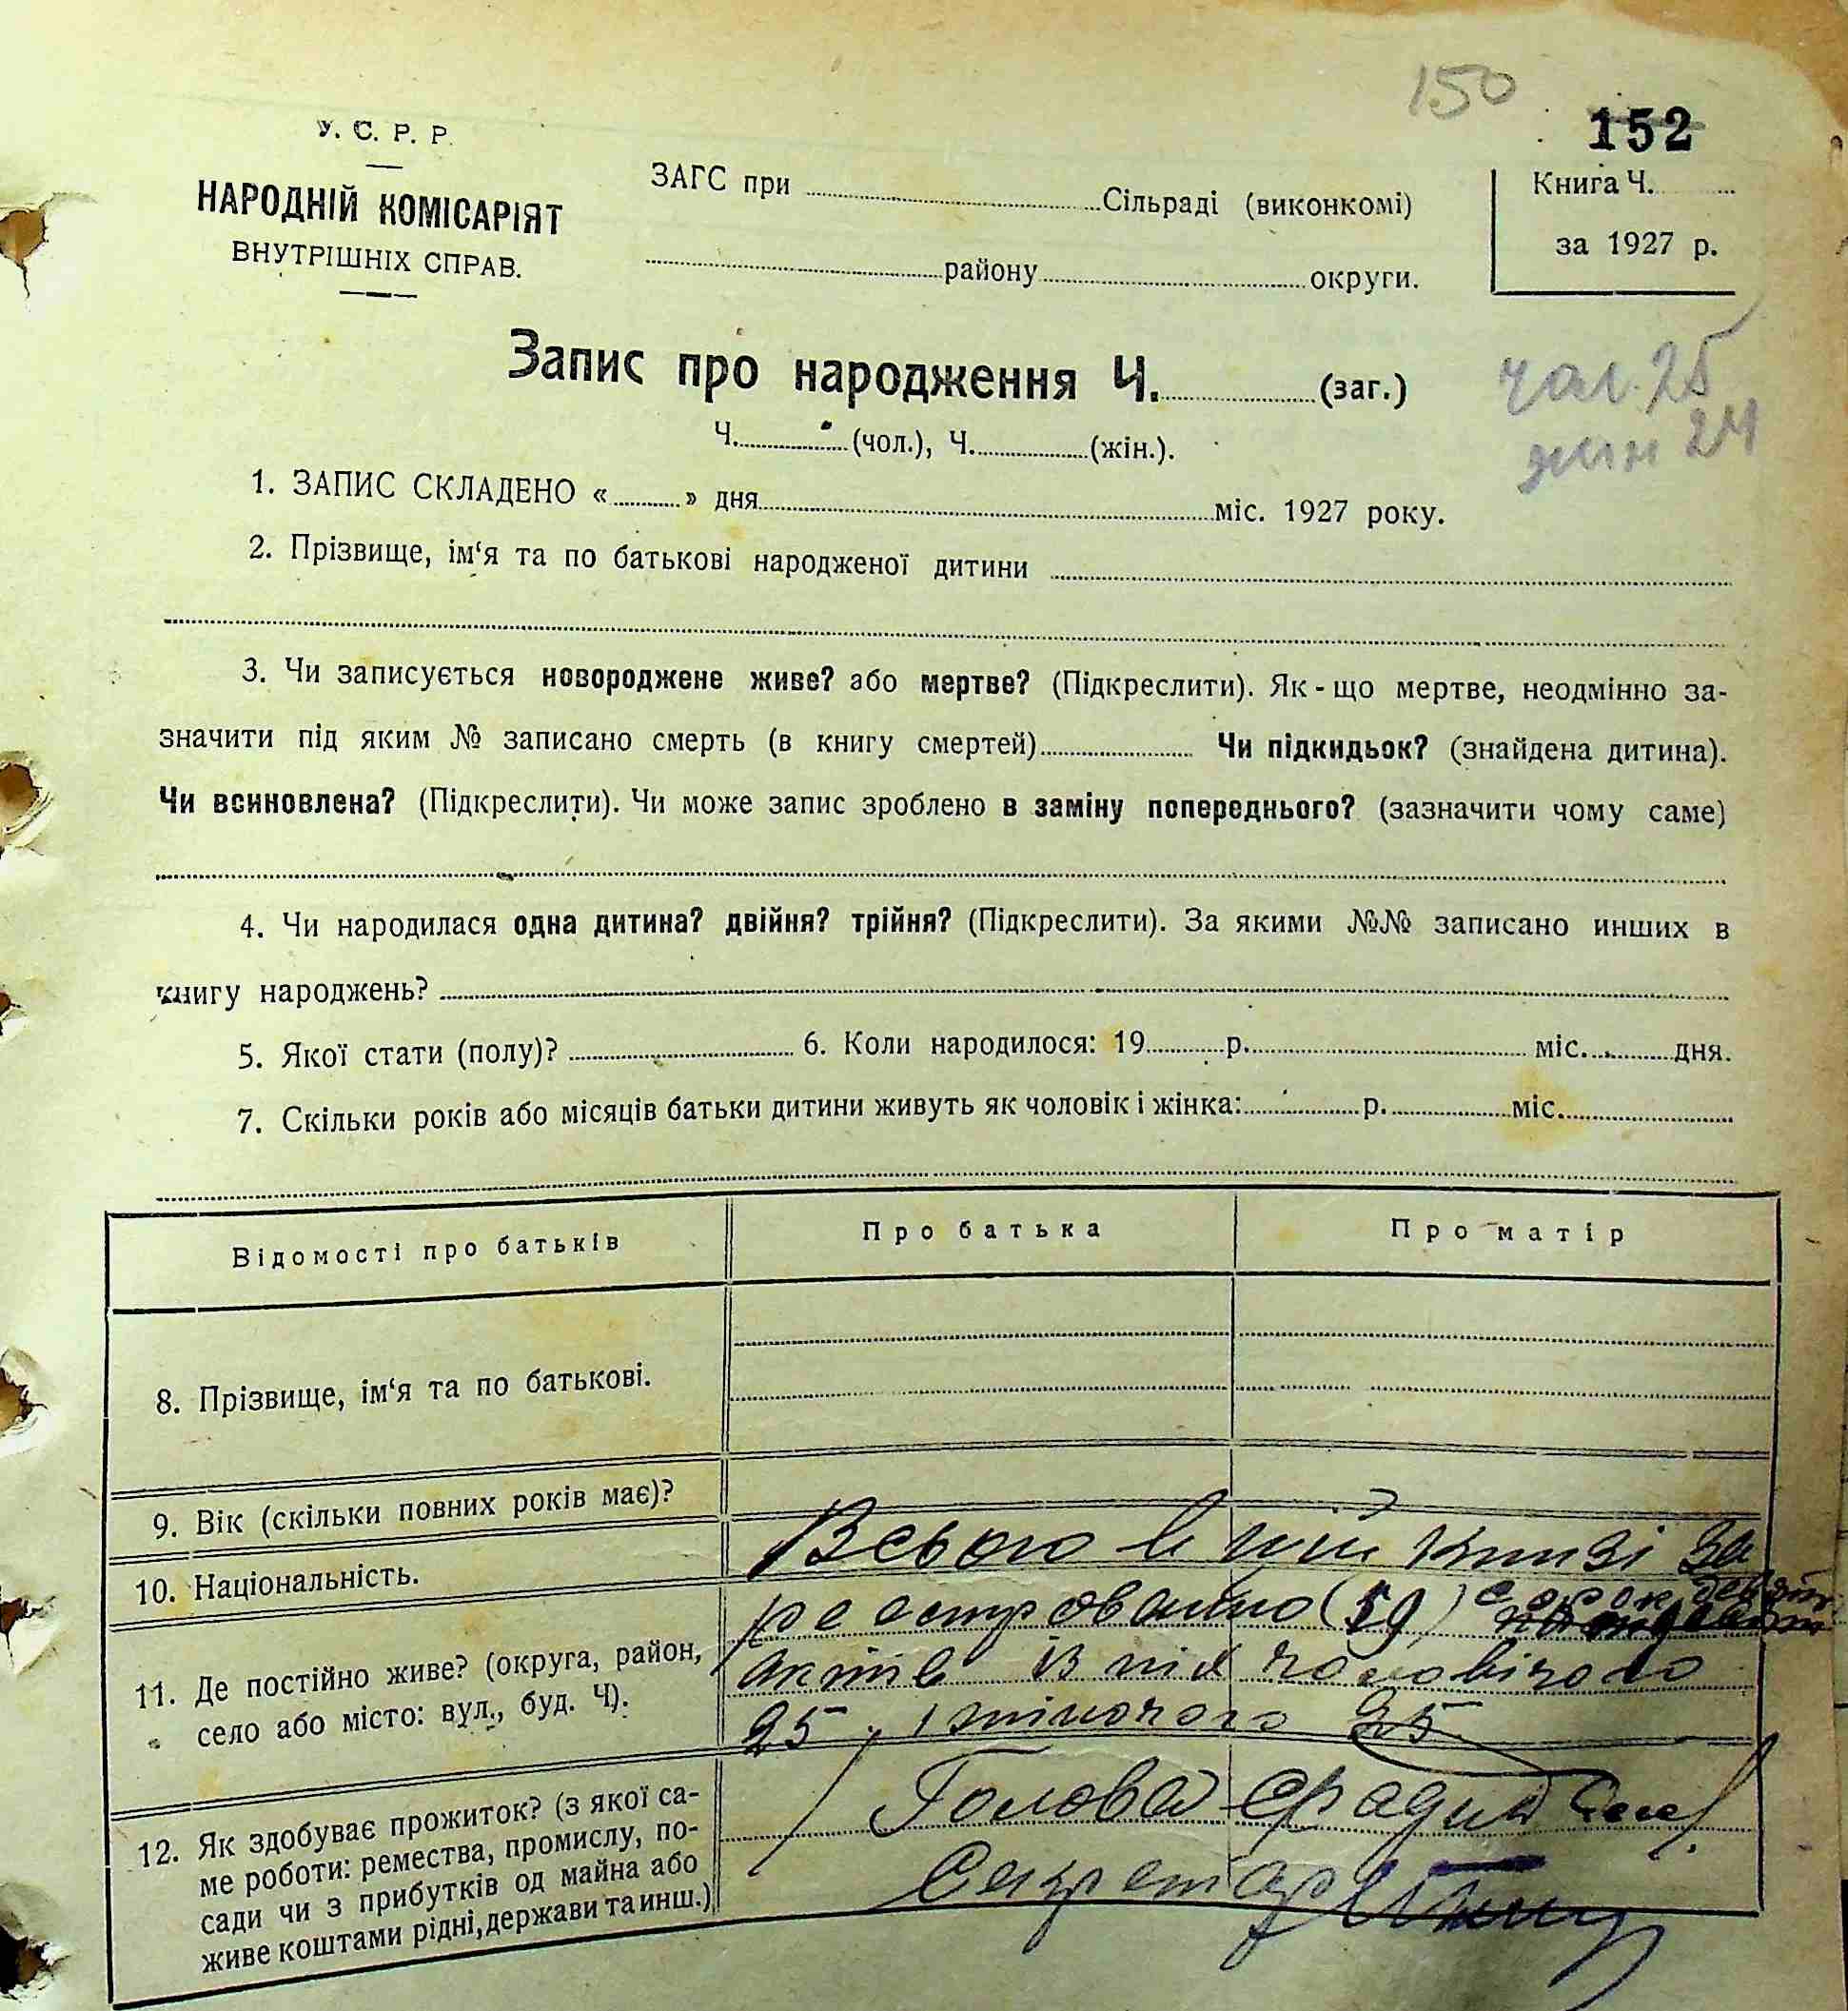 150
152
У. С. Р. Р.
НАРОДНІЙ КОМІСАРІЯТ
ВНУТРІШНІХ СПРАВ.
ЗАГС при ........ Сільраді (виконкомі)
........ району ........ округи.
Книга Ч. ....
за 1927 р.
Запис про народження Ч. ........ (заг.)
Ч. ........ (чол.), Ч. ........ (жін.).
чол. 25
жин 24
1. ЗАПИС СКЛАДЕНО « ........ » дня ........ міс. 1927 року.
2. Прізвище, ім‘я та по батькові народженої дитини ........
3. Чи записується новороджене живе? або мертве? (Підкреслити). Як-що мертве, неодмінно за-
значити під яким № записано смерть (в книгу смертей) ........ Чи підкидьок? (знайдена дитина).
Чи всиновлена? (Підкреслити). Чи може запис зроблено в заміну попереднього? (зазначити чому саме)
4. Чи народилася одна дитина? двійня? трійня? (Підкреслити). За якими №№ записано инших в
книгу народжень? ........
5. Якої стати (полу)? ........ 6. Коли народилося: 19 ........ р. ........ міс. ........ дня.
7. Скільки років або місяців батьки дитини живуть як чоловік і жінка: ........ р. ........ міс. ........
Відомості про батьків
Про батька
Про матір
8. Прізвище, ім‘я та по батькові.
9. Вік (скільки повних років має)?
10. Національність.
11. Де постійно живе? (округа, район,
село або місто: вул., буд. Ч).
12. Як здобуває прожиток? (з якої са-
ме роботи: ремества, промислу, по-
сади чи з прибутків од майна або
живе коштами рідні, держави та инш.)
Всього в цій книзі за
реестровано (59) сорок девять
актів із них чоловічого
25, і жіночого 25
Голова сради
Секретар